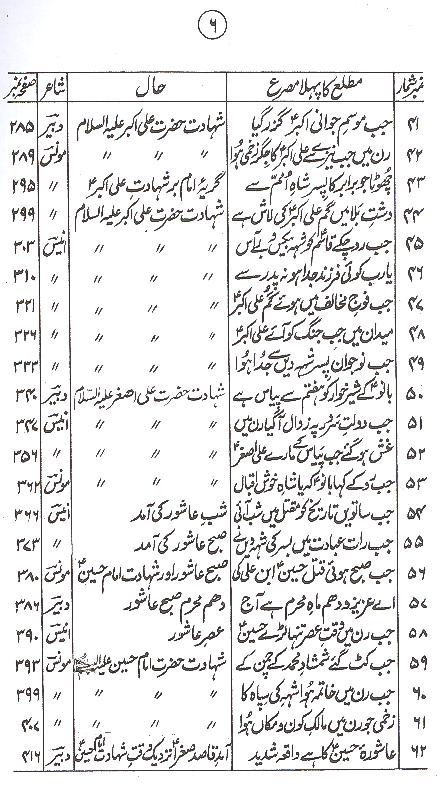 ۶
نمبر شمار مطلع کا پہلا مصرع حال شاعر صفحہ نمبر
۴۱ جب موسم جوانی اکبرؑ گذر گیا شہادت حضرت علی اکبر علیہ السلام دبیر ۲۸۵
۴۲ رن میں جب نیزے سے علی اکبرؑ کا جگر زخمی ہوا " " " مونس ۲۸۹
۴۳ چھوٹا جو برابر کا پسر شاہِ اُمم سے گریۂ امام بر شہادت علی اکبرؑ " ۲۹۵
۴۴ دشتِ بلا میں گم علی اکبرؑ کی لاش ہے شہادت حضرت علی اکبر علیہ السلام " ۲۹۹
۴۵ جب رو چکے قاسم کو شہِ بیکس و بے آس " " " انیس ۳۰۳
۴۶ یارب کوئی فرزند جدا ہو نہ پدر سے " " " " ۳۱۰
۴۷ جب فوج مخالف میں ہوئے گم علی اکبرؑ " " " " ۳۲۱
۴۸ میدان میں جب جنگ کو آئے علی اکبرؑ " " " " ۳۲۶
۴۹ جب نوجوان پسر شہِ دیں سے جدا ہوا " " " " ۳۳۳
۵۰ بانوؑ کے شیر خوار کو ہفتم سے پیاس ہے شہادت حضرت علی اصغر علیہ السلام دبیر ۳۴۰
۵۱ جب دولتِ سرور پہ زوال آ گیا رن میں " " " انیس ۳۴۷
۵۲ غش ہو گئے جب پیاس کے مارے علی اصغرؑ " " " " ۳۵۶
۵۳ جب رو کے کہا بانوؑ کہ یا شاہ خوش اقبال " " " مونس ۳۶۲
۵۴ جب ساتویں تاریخ کو مقتل میں شب آئی شبِ عاشور کی آمد انیس ۳۶۶
۵۵ جب رات عبادت میں بسر کی شہِ دیں نے صبح عاشور کی آمد " ۳۷۳
۵۶ جب صبح ہوئی قتل حسینؑ ابن علی کی صبح عاشور اور شہادت امام حسینؑ مونس ۳۸۰
۵۷ اے عزیزو دہم ماہِ محرم ہے آج دھم محرم صبح عاشور دبیر ۳۸۶
۵۸ جب رن میں وقتِ عصر تنہا رہے حسینؑ عصر عاشور انیس ۳۹۰
۵۹ جب کٹ گئے شمشاد محمدؐ کے چمن کے شہادت حضرت امام حسین علیہ السلام مونس ۳۹۳
۶۰ جب رن میں خاتمہ ہوا شہ کی سپاہ کا " " " " ۳۹۹
۶۱ زخمی جو رن میں مالکِ کون و مکاں ہوا " " " " ۴۰۷
۶۲ عاشورۂ حسینؑ کا ہے واقعہ شدید آمدِ قاصد صغراؑ نزدیک وقتِ شہادت امام حسینؑ دبیر ۴۱۶